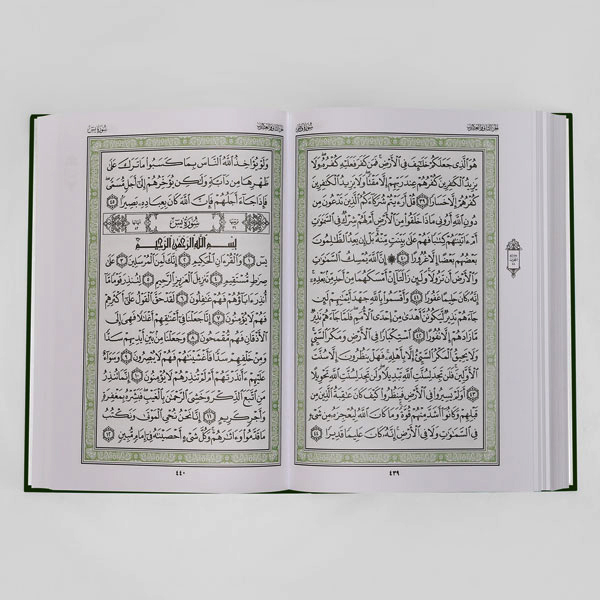 الجزء الثاني والعشرون سُورَةُ فَاطِر
هُوَ ٱلَّذِي جَعَلَكُمْ خَلَٰٓئِفَ فِي ٱلْأَرْضِ فَمَن كَفَرَ فَعَلَيْهِ كُفْرُهُۥ وَلَا
يَزِيدُ ٱلْكَٰفِرِينَ كُفْرُهُمْ عِندَ رَبِّهِمْ إِلَّا مَقْتًا وَلَا يَزِيدُ ٱلْكَٰفِرِينَ
كُفْرُهُمْ إِلَّا خَسَارًا ٣٩ قُلْ أَرَءَيْتُمْ شُرَكَآءَكُمُ ٱلَّذِينَ تَدْعُونَ مِن
دُونِ ٱللَّهِ أَرُونِي مَاذَا خَلَقُوا۟ مِنَ ٱلْأَرْضِ أَمْ لَهُمْ شِرْكٌ فِي ٱلسَّمَٰوَٰتِ
أَمْ ءَاتَيْنَٰهُمْ كِتَٰبًا فَهُمْ عَلَىٰ بَيِّنَتٍ مِّنْهُ بَلْ إِن يَعِدُ ٱلظَّٰلِمُونَ
بَعْضُهُم بَعْضًا إِلَّا غُرُورًا ٤٠ ۞ إِنَّ ٱللَّهَ يُمْسِكُ ٱلسَّمَٰوَٰتِ
وَٱلْأَرْضَ أَن تَزُولَا وَلَئِن زَالَتَآ إِنْ أَمْسَكَهُمَا مِنْ أَحَدٍ مِّنۢ بَعْدِهِۦٓ
إِنَّهُۥ كَانَ حَلِيمًا غَفُورًا ٤١ وَأَقْسَمُوا۟ بِٱللَّهِ جَهْدَ أَيْمَٰنِهِمْ لَئِن
جَآءَهُمْ نَذِيرٌ لَّيَكُونُنَّ أَهْدَىٰ مِنْ إِحْدَى ٱلْأُمَمِ فَلَمَّا جَآءَهُمْ نَذِيرٌ
مَّا زَادَهُمْ إِلَّا نُفُورًا ٤٢ ٱسْتِكْبَارًا فِي ٱلْأَرْضِ وَمَكْرَ ٱلسَّيِّئِ
وَلَا يَحِيقُ ٱلْمَكْرُ ٱلسَّيِّئُ إِلَّا بِأَهْلِهِۦ فَهَلْ يَنظُرُونَ إِلَّا سُنَّتَ
ٱلْأَوَّلِينَ فَلَن تَجِدَ لِسُنَّتِ ٱللَّهِ تَبْدِيلًا وَلَن تَجِدَ لِسُنَّتِ ٱللَّهِ تَحْوِيلًا
٤٣ أَوَلَمْ يَسِيرُوا۟ فِي ٱلْأَرْضِ فَيَنظُرُوا۟ كَيْفَ كَانَ عَٰقِبَةُ ٱلَّذِينَ مِن
قَبْلِهِمْ وَكَانُوٓا۟ أَشَدَّ مِنْهُمْ قُوَّةً وَمَا كَانَ ٱللَّهُ لِيُعْجِزَهُۥ مِن شَيْءٍ
فِي ٱلسَّمَٰوَٰتِ وَلَا فِي ٱلْأَرْضِ إِنَّهُۥ كَانَ عَلِيمًا قَدِيرًا ٤٤
٤٣٩
الجزء الثاني والعشرون سُورَةُ يس
وَلَوْ يُؤَاخِذُ ٱللَّهُ ٱلنَّاسَ بِمَا كَسَبُوا۟ مَا تَرَكَ عَلَىٰ
ظَهْرِهَا مِن دَآبَّةٍ وَلَٰكِن يُؤَخِّرُهُمْ إِلَىٰٓ أَجَلٍ مُّسَمًّى
فَإِذَا جَآءَ أَجَلُهُمْ فَإِنَّ ٱللَّهَ كَانَ بِعِبَادِهِۦ بَصِيرًۢا ٤٥
سُورَةُ يسٓ
بِسْمِ ٱللَّهِ ٱلرَّحْمَٰنِ ٱلرَّحِيمِ
يسٓ ١ وَٱلْقُرْءَانِ ٱلْحَكِيمِ ٢ إِنَّكَ لَمِنَ ٱلْمُرْسَلِينَ ٣ عَلَىٰ
صِرَٰطٍ مُّسْتَقِيمٍ ٤ تَنزِيلَ ٱلْعَزِيزِ ٱلرَّحِيمِ ٥ لِتُنذِرَ قَوْمًا مَّآ
أُنذِرَ ءَابَآؤُهُمْ فَهُمْ غَٰفِلُونَ ٦ لَقَدْ حَقَّ ٱلْقَوْلُ عَلَىٰٓ أَكْثَرِهِمْ
فَهُمْ لَا يُؤْمِنُونَ ٧ إِنَّا جَعَلْنَا فِيٓ أَعْنَٰقِهِمْ أَغْلَٰلًا فَهِيَ إِلَى
ٱلْأَذْقَانِ فَهُم مُّقْمَحُونَ ٨ وَجَعَلْنَا مِنۢ بَيْنِ أَيْدِيهِمْ سَدًّا
وَمِنْ خَلْفِهِمْ سَدًّا فَأَغْشَيْنَٰهُمْ فَهُمْ لَا يُبْصِرُونَ ٩ وَسَوَآءٌ
عَلَيْهِمْ ءَأَنذَرْتَهُمْ أَمْ لَمْ تُنذِرْهُمْ لَا يُؤْمِنُونَ ١٠ إِنَّمَا تُنذِرُ
مَنِ ٱتَّبَعَ ٱلذِّكْرَ وَخَشِيَ ٱلرَّحْمَٰنَ بِٱلْغَيْبِ فَبَشِّرْهُ بِمَغْفِرَةٍ
وَأَجْرٍ كَرِيمٍ ١١ إِنَّا نَحْنُ نُحْيِ ٱلْمَوْتَىٰ وَنَكْتُبُ
مَا قَدَّمُوا۟ وَءَاثَٰرَهُمْ وَكُلَّ شَيْءٍ أَحْصَيْنَٰهُ فِيٓ إِمَامٍ مُّبِينٍ ١٢
٤٤٠